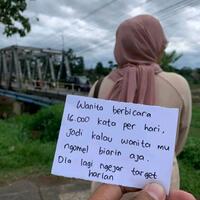 Wanita berbicara
16.000 kata per hari.
Jadi kalau wanita mu
ngomel biarin aja.
Dia lagi ngejar target
harian